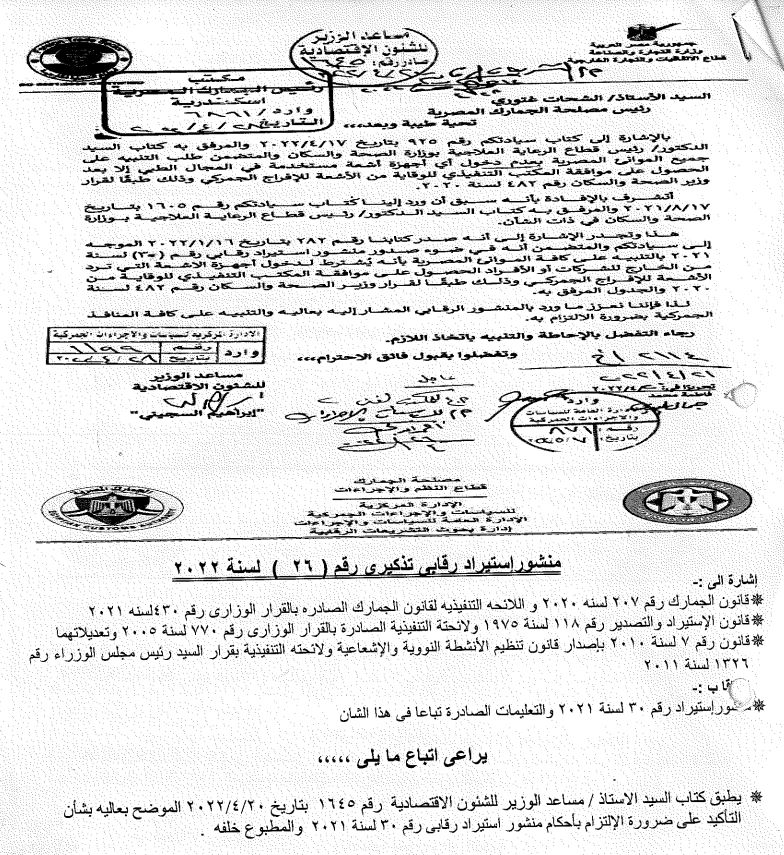 جمهورية مصر العربية
وزارة التجارة والصناعة
قطاع الاتفاقيات والتجارة الخارجية
مساعد الوزير
للشئون الاقتصادية
صادر رقم: ١٦٤٥
مكتب
رئيس الجمارك المصرية
اسكندرية
وارد / ٦٨٦١
التاريخ
السيد الأستاذ/ الشحات غتوري
رئيس مصلحة الجمارك المصرية
تحية طيبة وبعد،،،،
بالإشارة إلى كتاب سيادتكم رقم ٩٢٥ بتاريخ ٢٠٢٢/٤/١٧ والمرفق به كتاب السيد
الدكتور/ رئيس قطاع الرعاية العلاجية بوزارة الصحة والسكان والمتضمن طلب التنبيه على
جميع الموانئ المصرية بعدم دخول أي أجهزة أشعة مستخدمة في المجال الطبي إلا بعد
الحصول على موافقة المكتب التنفيذي للوقاية من الأشعة للإفراج الجمركي وذلك طبقًا لقرار
وزير الصحة والسكان رقم ٤٨٢ لسنة ٢٠٢٠.
أتشرف بالإفادة بأنه سبق أن ورد إلينا كتاب سيادتكم رقم ١٦٠٥ بتاريخ
٢٠٢١/٨/١٧ والمرفق به كتاب السيد الدكتور/ رئيس قطاع الرعاية العلاجية بوزارة
الصحة والسكان في ذات الشأن.
هذا وتجدر الإشارة إلى أنه صدر كتابنا رقم ٢٨٢ بتاريخ ٢٠٢٢/١/١٦ الموجه
إلى سيادتكم والمتضمن أنه في ضوء صدور منشور استيراد رقابي رقم (٣٠) لسنة
٢٠٢١ بالتنبيه على كافة الموانئ المصرية بأنه يُشترط لدخول أجهزة الأشعة التي ترد
من الخارج للشركات أو الأفراد الحصول على موافقة المكتب التنفيذي للوقاية من
الأشعة للإفراج الجمركي وذلك طبقًا لقرار وزير الصحة والسكان رقم ٤٨٢ لسنة
٢٠٢٠ والجدول المرفق به.
لذا فإننا نعزز ما ورد بالمنشور الرقابي المشار إليه بعاليه والتنبيه على كافة المنافذ
الجمركية بضرورة الالتزام به.
رجاء التفضل بالإحاطة والتنبيه باتخاذ اللازم.
وتفضلوا بقبول فائق الاحترام،،،،
الإدارة المركزية للسياسات والإجراءات الجمركية
وارد رقم ٦١٩٩
بتاريخ
مساعد الوزير
للشئون الاقتصادية
"إبراهيم السجيني"
عاجل
فاطمة محمد
وارد
الإدارة العامة للسياسات
والإجراءات الجمركية
رقم: ٨٧١
بتاريخ:
مصلحة الجمارك
قطاع النظم والإجراءات
الإدارة المركزية
للسياسات والإجراءات الجمركية
الإدارة العامة للسياسات والإجراءات
إدارة بحوث التشريعات الرقابية
منشور إستيراد رقابى تذكيرى رقم ( ٢٦ ) لسنة ٢٠٢٢
إشارة الى :-
❋قانون الجمارك رقم ٢٠٧ لسنه ٢٠٢٠ و اللائحه التنفيذيه لقانون الجمارك الصادره بالقرار الوزارى رقم ٤٣٠لسنه ٢٠٢١
❋قانون الإستيراد والتصدير رقم ١١٨ لسنة ١٩٧٥ ولائحتة التنفيذية الصادرة بالقرار الوزارى رقم ٧٧٠ لسنة ٢٠٠٥ وتعديلاتهما
❋قانون رقم ٧ لسنة ٢٠١٠ بإصدار قانون تنظيم الأنشطة النووية والإشعاعية ولائحته التنفيذية بقرار السيد رئيس مجلس الوزراء رقم
١٣٢٦ لسنة ٢٠١١
❋منشور إستيراد رقم ٣٠ لسنة ٢٠٢١ والتعليمات الصادرة تباعا فى هذا الشان
يراعى اتباع ما يلى ،،،،،
❋ يطبق كتاب السيد الاستاذ / مساعد الوزير للشئون الاقتصادية رقم ١٦٤٥ بتاريخ ٢٠٢٢/٤/٢٠ الموضح بعاليه بشأن
التأكيد على ضرورة الإلتزام بأحكام منشور استيراد رقابى رقم ٣٠ لسنة ٢٠٢١ والمطبوع خلفه .